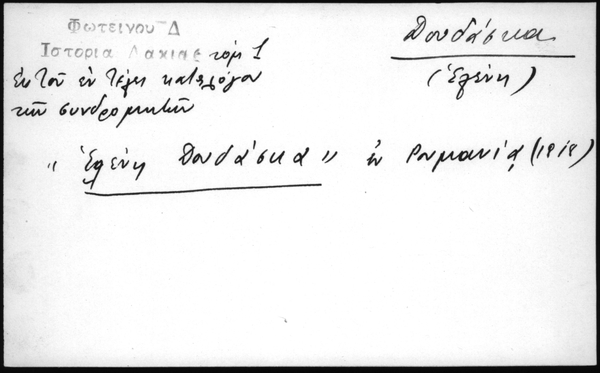 Φωτεινου Δ
Ιστορια Δακιας τόμ 1
ἐκ τοῦ ἐν τέλει καταλόγου
τῶν συνδρομητῶν
Δουδάσκα
(Ἑλένη)
" Ἑλένη Δουδάσκα " ἐν Ρουμανίᾳ (1818)